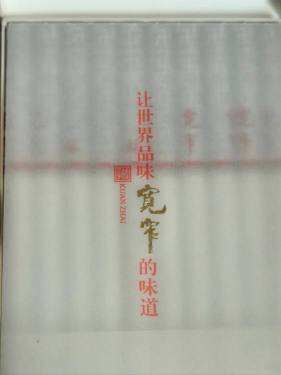 让世界品味宽窄的味道
KUANZHAI